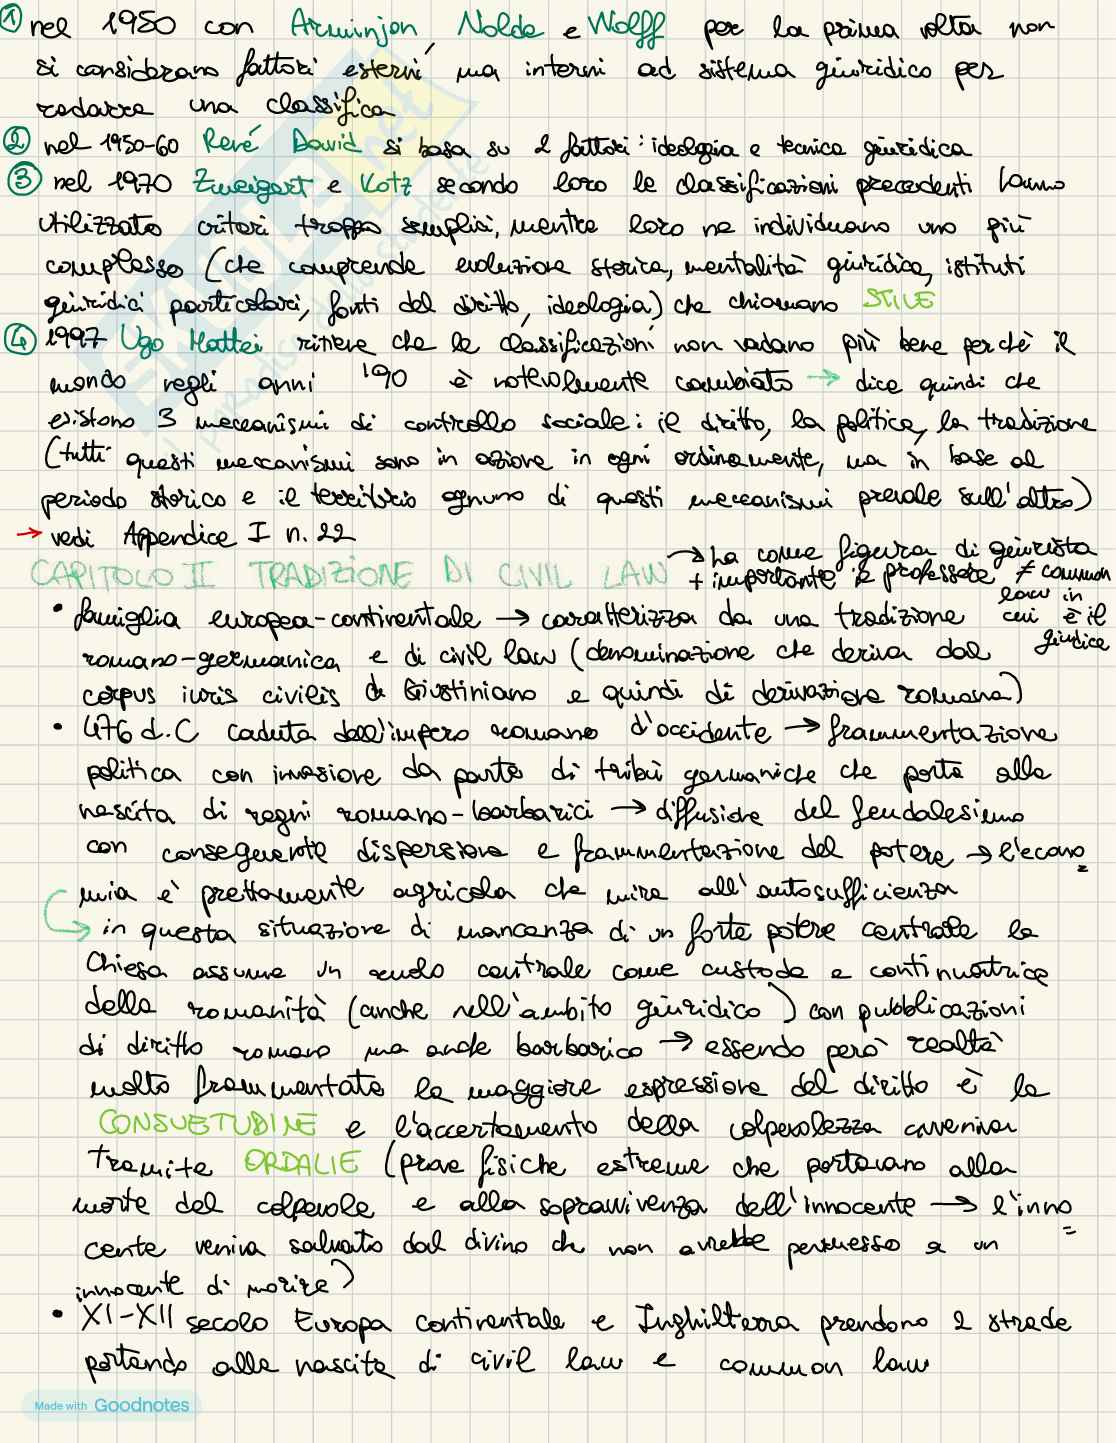 ① nel 1950 con Arminjon Nolde e Wolff per la prima volta non
si considerano fattori esterni, ma interni ad sistema giuridico per
redarre una classifica
② nel 1950-60 René David si basa su 2 fattori: ideologia e tecnica giuridica
③ nel 1970 Zweigert e Kotz secondo loro le classificazioni precedenti hanno
utilizzato criteri troppo semplici, mentre loro ne individuano uno più
complesso (che comprende evoluzione storica, mentalità giuridica, istituti
giuridici particolari, fonti del diritto, ideologia) che chiamano STILE
④ 1997 Ugo Mattei ritiene che le classificazioni non vadano più bene perchè il
mondo negli anni '90 è notevolmente cambiato → dice quindi che
esistono 3 meccanismi di controllo sociale: il diritto, la politica, la tradizione
(tutti questi meccanismi sono in azione in ogni ordinamente, ma in base al
periodo storico e il territorio ognuno di questi meccanismi prevale sull'altro)
→ vedi Appendice I n. 22
CAPITOLO II TRADIZIONE DI CIVIL LAW → ha come figura di giurista
+ importante il professore ≠ common
law in
cui è il
giudice
• famiglia europea-continentale → caratterizza da una tradizione
romano-germanica e di civil law (denominazione che deriva dal
corpus iuris civilis di Giustiniano e quindi di derivazione romana)
• 476 d.C caduta dell'impero romano d'occidente → frammentazione
politica con invasione da parte di tribù germaniche che porta alla
nascita di regni romano-barbarici → diffusione del feudalesimo
con conseguente dispersione e frammentazione del potere → l'econo
mia è prettamente agricola che mira all'autosufficienza
↳ in questa situazione di mancanza di un forte potere centrale la
Chiesa assume un ruolo centrale come custode e continuatrice
della romanità (anche nell'ambito giuridico) con pubblicazioni
di diritto romano ma anche barbarico → essendo però realtà
molto frammentata la maggiore espressione del diritto è la
CONSUETUDINE e l'accertamento della colpevolezza avveniva
tramite ORDALIE (prove fisiche estreme che portavano alla
morte del colpevole e alla sopravvivenza dell'innocente → l'inno
cente veniva salvato dal divino che non avrebbe permesso a un
innocente di morire)
• XI-XII secolo Europa continentale e Inghilterra prendono 2 strade
portando alla nascita di civil law e common law
Made with Goodnotes